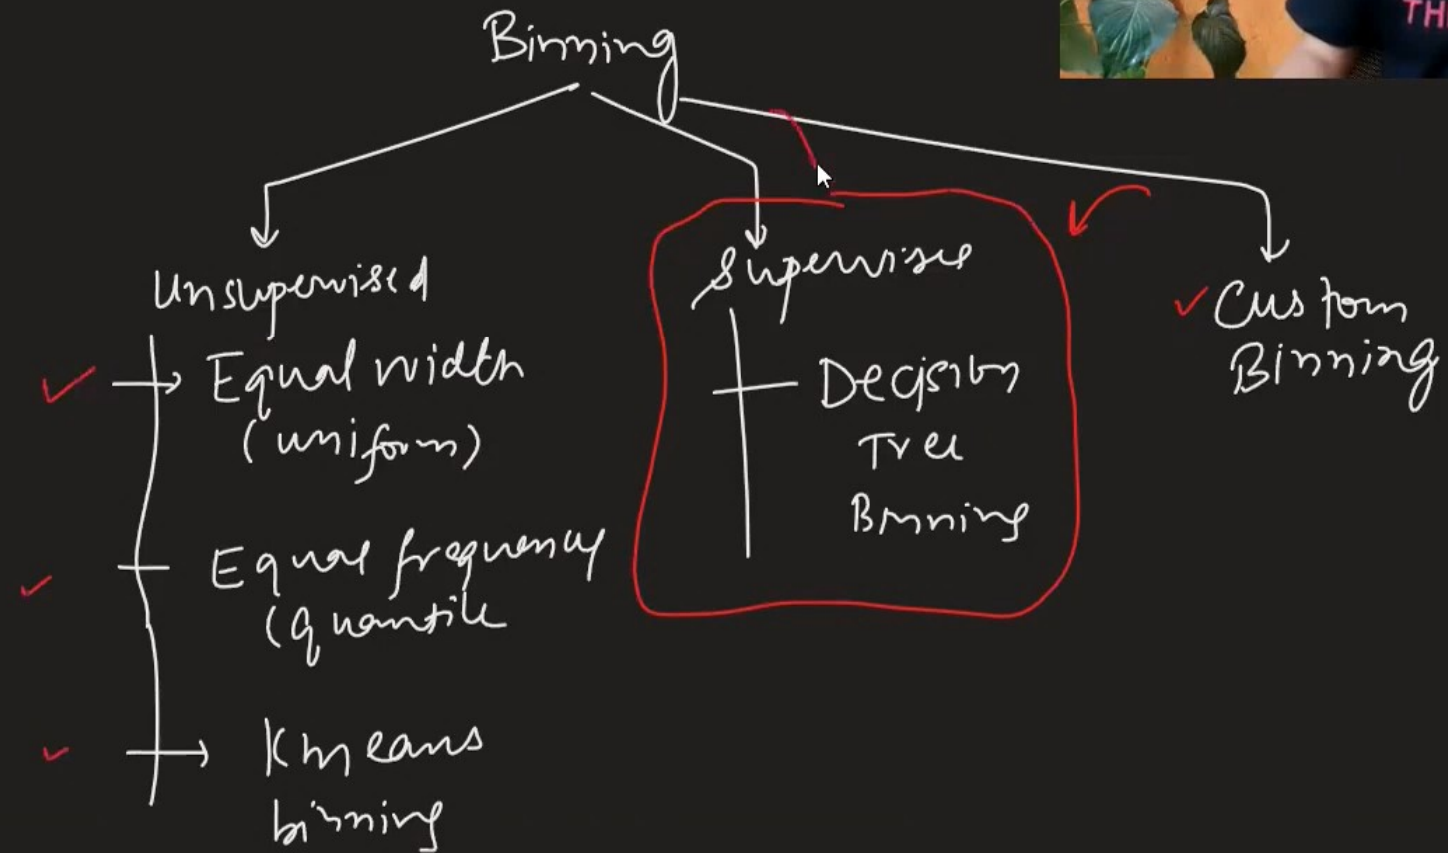 TH
Binning
Unsupervised
Equal width
(uniform)
Equal frequency
(quantile
Kmeans
binning
Supervised
Decision
Tree
Binning
Custom
Binning